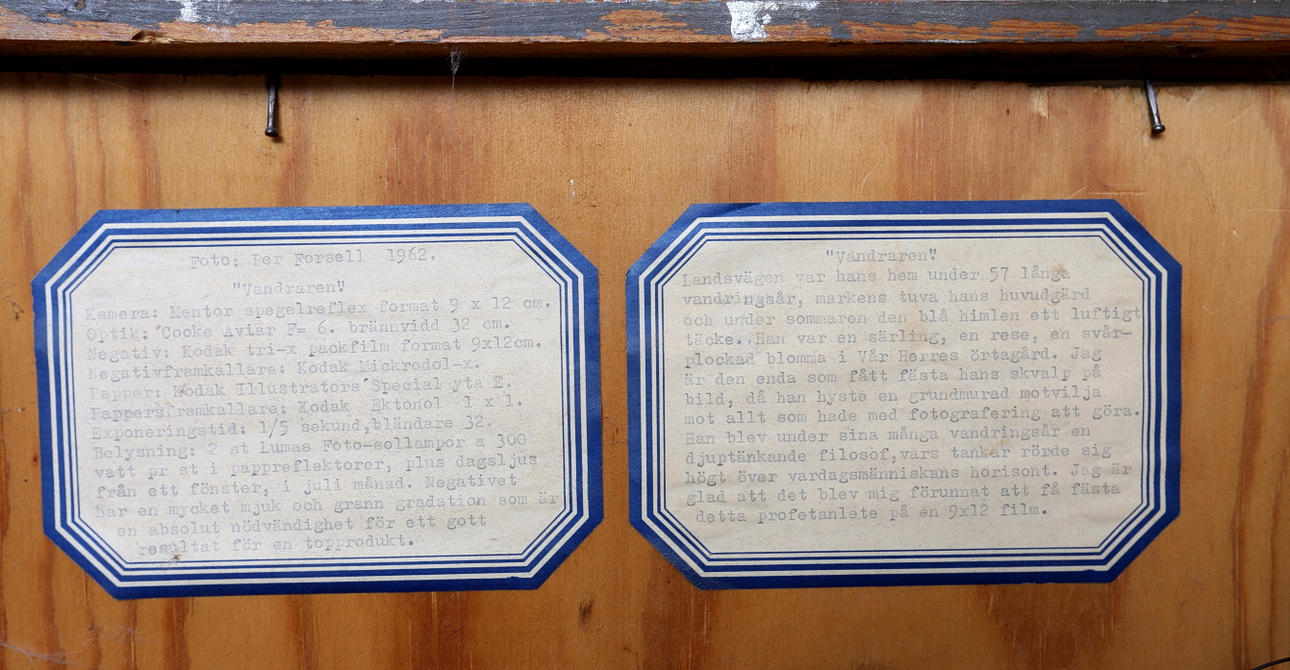 Foto: Per Forsell 1962.
"Vandraren"
Kamera: Mentor spegelreflex format 9 x 12 cm.
Optik: Cooke Aviar F= 6. brännvidd 32 cm.
Negativ: Kodak tri-x packfilm format 9x12cm.
Negativframkallare: Kodak Mickrodol-x.
Papper: Kodak Illustrators Special yta E.
Pappersframkallare: Kodak Ektonol 1 x 1.
Exponeringstid: 1/5 sekund,bländare 32.
Belysning: 2 st Lumas Foto-sollampor a 300
vatt pr st i pappreflektorer, plus dagsljus
från ett fönster, i juli månad. Negativet
har en mycket mjuk och grann gradation som är
en absolut nödvändighet för ett gott
resultat för en topprodukt.
"Vandraren"
Landsvägen var hans hem under 57 långa
vandringsår, markens tuva hans huvudgärd
och under sommaren den blå himlen ett luftigt
täcke. Han var en särling, en rese, en svår-
plockad blomma i Vår Herres örtagård. Jag
är den enda som fått fästa hans skvalp på
bild, då han hyste en grundmurad motvilja
mot allt som hade med fotografering att göra.
Han blev under sina många vandringsår en
djuptänkande filosof,vars tankar rörde sig
högt över vardagsmänniskans horisont. Jag är
glad att det blev mig förunnat att få fästa
detta profetanlete på en 9x12 film.